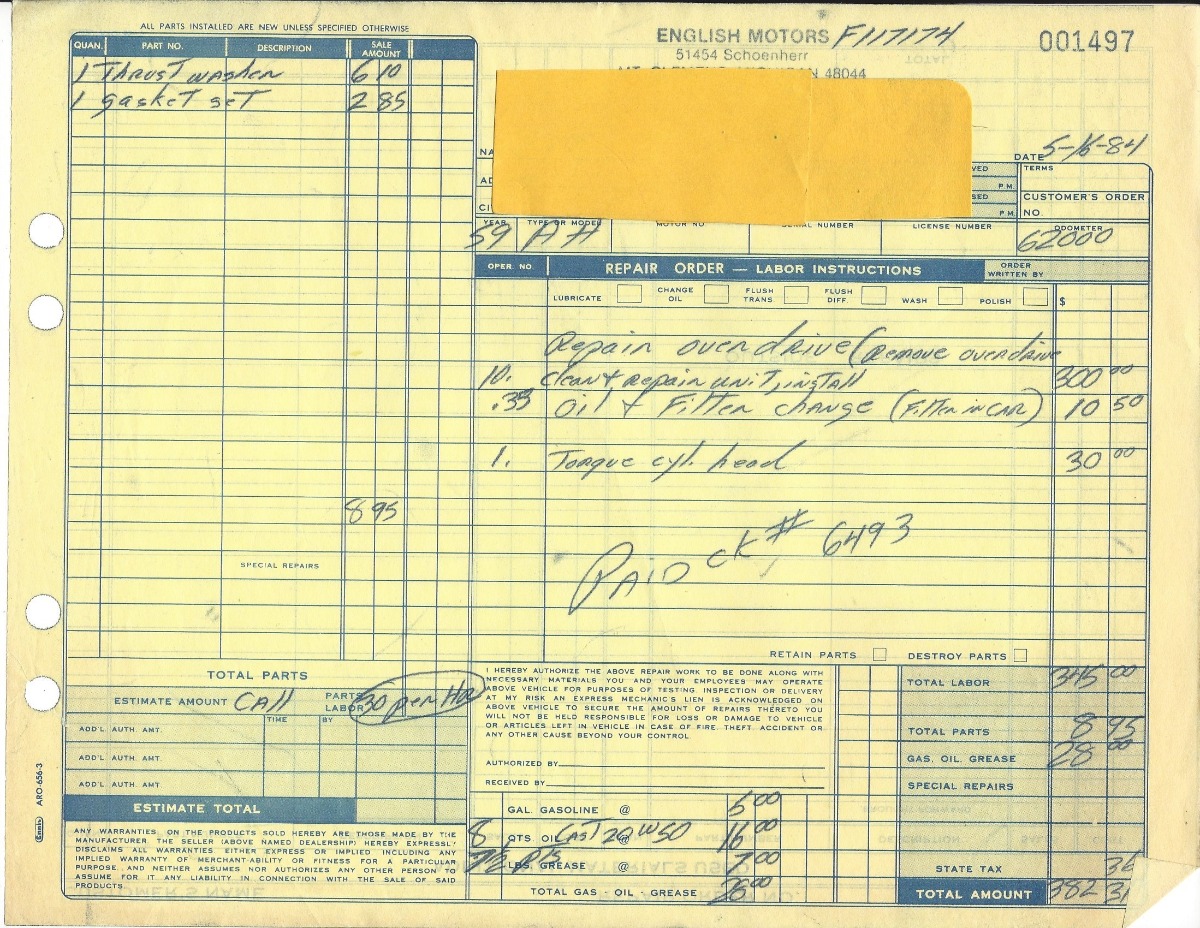 ALL PARTS INSTALLED ARE NEW UNLESS SPECIFIED OTHERWISE
QUAN. PART NO. DESCRIPTION SALE AMOUNT
1 Thrust washer 6 10
1 gasket set 2 85
8 95
SPECIAL REPAIRS
TOTAL PARTS
ESTIMATE AMOUNT Call PARTS LABOR 30 per Hour
TIME BY
ADD'L AUTH. AMT.
ADD'L AUTH. AMT.
ADD'L AUTH. AMT.
ESTIMATE TOTAL
ANY WARRANTIES ON THE PRODUCTS SOLD HEREBY ARE THOSE MADE BY THE
MANUFACTURER. THE SELLER (ABOVE NAMED DEALERSHIP) HEREBY EXPRESSLY
DISCLAIMS ALL WARRANTIES EITHER EXPRESS OR IMPLIED INCLUDING ANY
IMPLIED WARRANTY OF MERCHANT-ABILITY OR FITNESS FOR A PARTICULAR
PURPOSE, AND NEITHER ASSUMES NOR AUTHORIZES ANY OTHER PERSON TO
ASSUME FOR IT ANY LIABILITY IN CONNECTION WITH THE SALE OF SAID
PRODUCTS.
Ennis ARO-656-3
ENGLISH MOTORS F117174
001497
51454 Schoenherr
48044
DATE 5-16-84
TERMS
P.M.
CUSTOMER'S ORDER
P.M. NO.
YEAR TYPE OR MODEL MOTOR NO. SERIAL NUMBER LICENSE NUMBER ODOMETER
59 AH 62000
OPER. NO. REPAIR ORDER — LABOR INSTRUCTIONS ORDER WRITTEN BY
LUBRICATE CHANGE OIL FLUSH TRANS FLUSH DIFF. WASH POLISH $
Repair overdrive (Remove overdrive
10. clean + repair unit, install 300 00
.35 Oil + Filter change (Filter in car) 10 50
1. Torque cyl. head 30 00
PAID ck# 6493
RETAIN PARTS DESTROY PARTS
I HEREBY AUTHORIZE THE ABOVE REPAIR WORK TO BE DONE ALONG WITH
NECESSARY MATERIALS YOU AND YOUR EMPLOYEES MAY OPERATE
ABOVE VEHICLE FOR PURPOSES OF TESTING. INSPECTION OR DELIVERY
AT MY RISK AN EXPRESS MECHANIC'S LIEN IS ACKNOWLEDGED ON
ABOVE VEHICLE TO SECURE THE AMOUNT OF REPAIRS THERETO YOU
WILL NOT BE HELD RESPONSIBLE FOR LOSS OR DAMAGE TO VEHICLE
OR ARTICLES LEFT IN VEHICLE IN CASE OF FIRE. THEFT. ACCIDENT OR
ANY OTHER CAUSE BEYOND YOUR CONTROL
AUTHORIZED BY
RECEIVED BY
GAL. GASOLINE @ 5 00
8 QTS. OIL CAST 20W50 @ 16 00
LBS. GREASE @ 7 00
TOTAL GAS - OIL - GREASE 28 00
TOTAL LABOR 345 00
TOTAL PARTS 8 95
GAS. OIL. GREASE 28 00
SPECIAL REPAIRS
STATE TAX 36
TOTAL AMOUNT 382 31